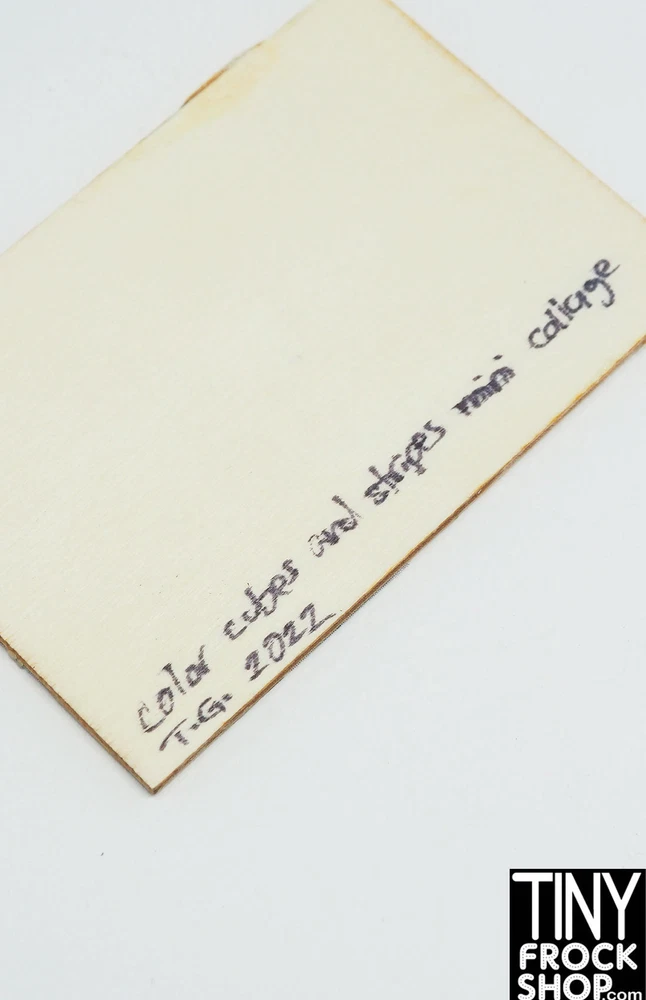 color cubes and stripes mini collage
T.G. 2022
TINY
FROCK
SHOP.com